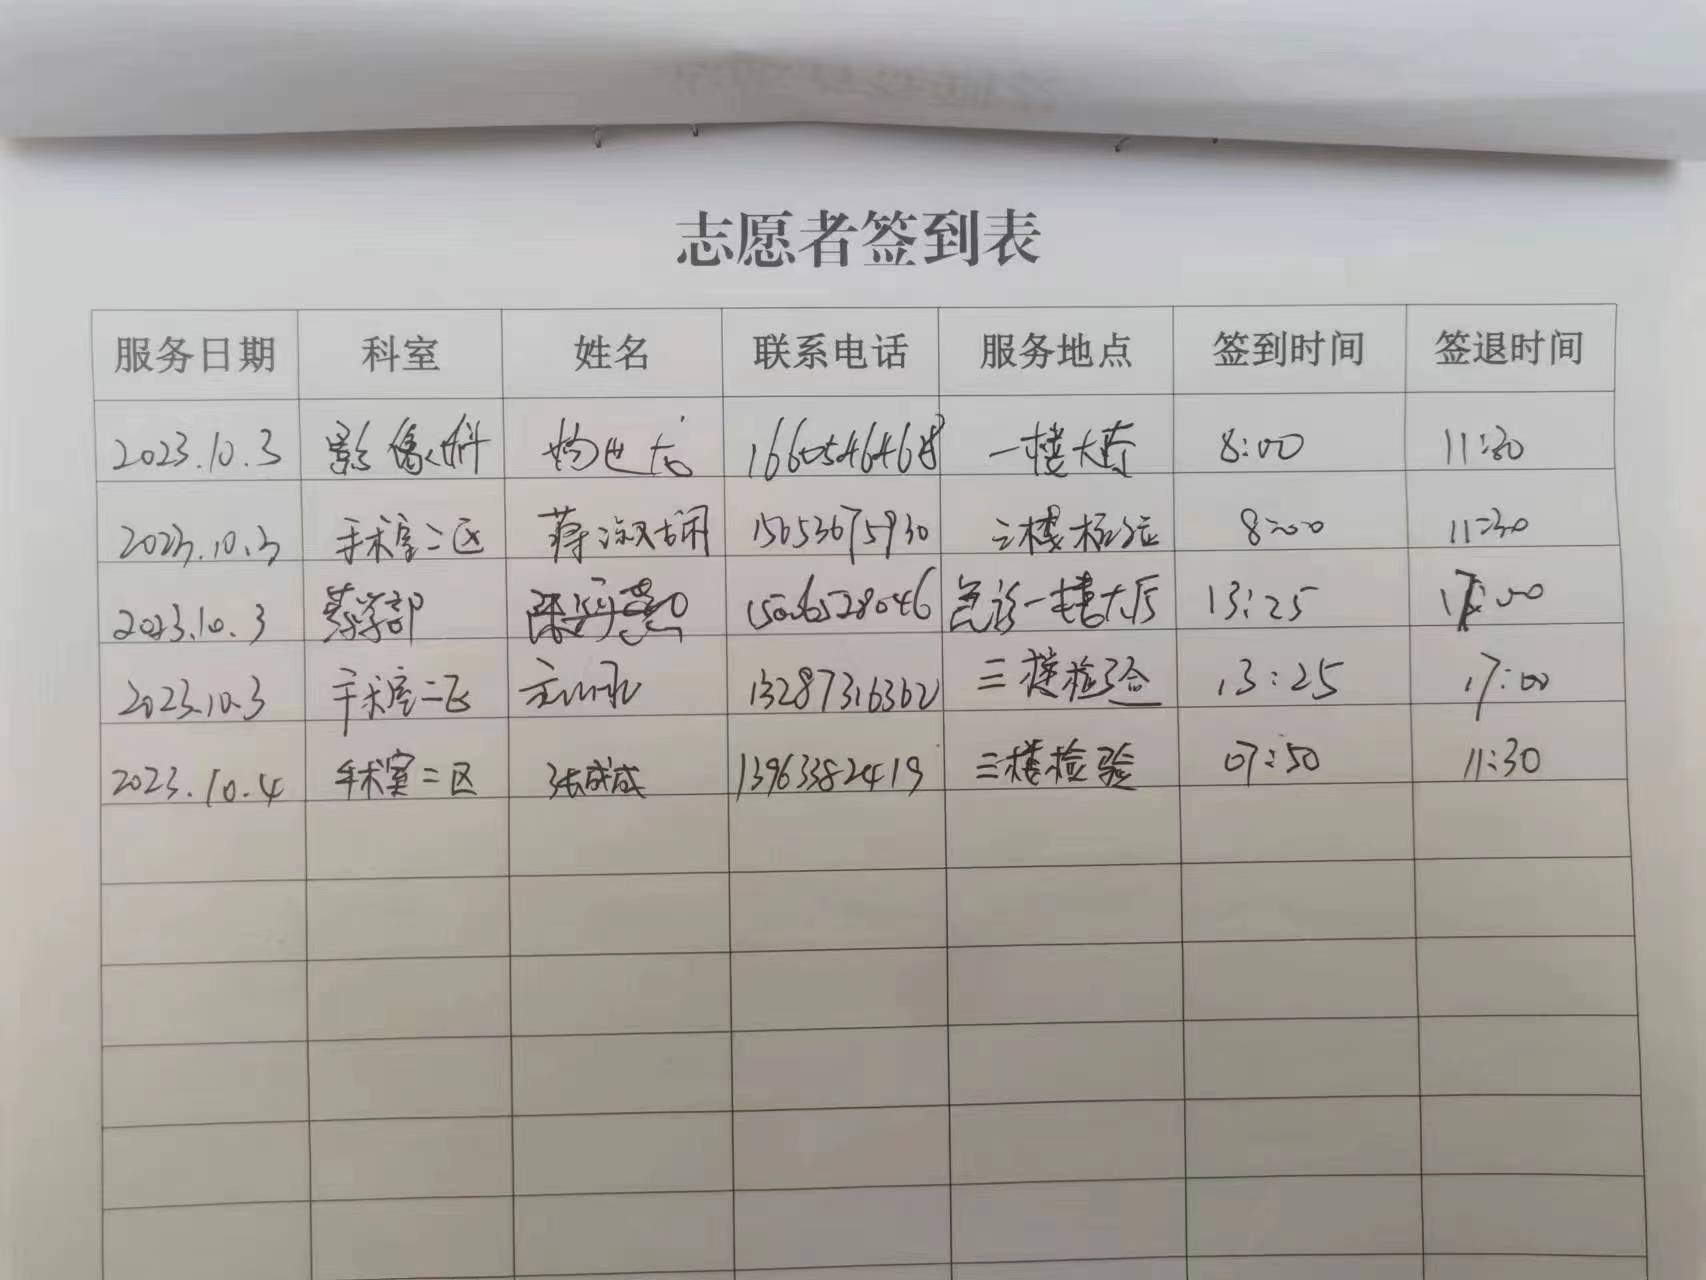 志愿者签到表
服务日期 科室 姓名 联系电话 服务地点 签到时间 签退时间
2023.10.3 影像科 一楼大厅 8:00 11:30
2023.10.3 手术室二区 15653675930 三楼检验 8:00 11:30
2023.10.3 药学部 15065528046 急诊一楼大厅 13:25 17:00
2023.10.3 手术室二区 13287316362 三楼检验 13:25 17:00
2023.10.4 手术室二区 张成成 13963382419 三楼检验 07:50 11:30